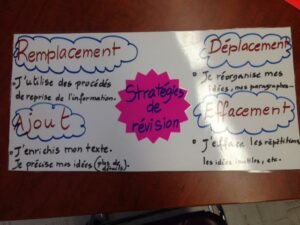 Remplacement
• J'utilise des procédés
de reprise de l'information.
Ajout
• J'enrichis mon texte.
Je précise mes idées (plus de
détails).
Stratégies
de
révision
Déplacement
• Je réorganise mes
idées, mes paragraphes...
Effacement
• J'efface les répétitions,
les idées inutiles, etc.